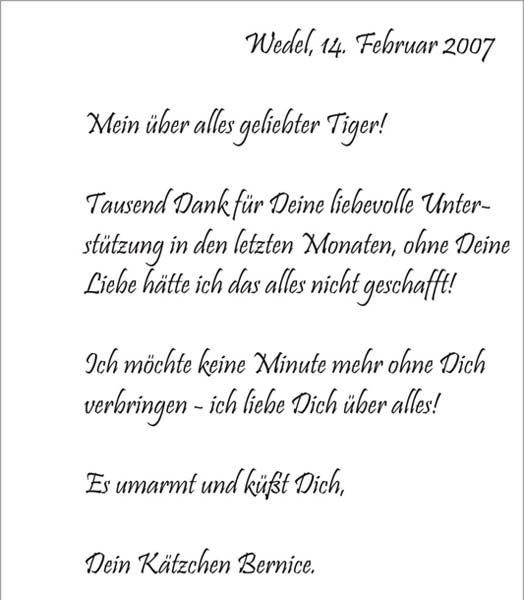 Wedel, 14. Februar 2007
Mein über alles geliebter Tiger!
Tausend Dank für Deine liebevolle Unter-
stützung in den letzten Monaten, ohne Deine
Liebe hätte ich das alles nicht geschafft!
Ich möchte keine Minute mehr ohne Dich
verbringen - ich liebe Dich über alles!
Es umarmt und küßt Dich,
Dein Kätzchen Bernice.